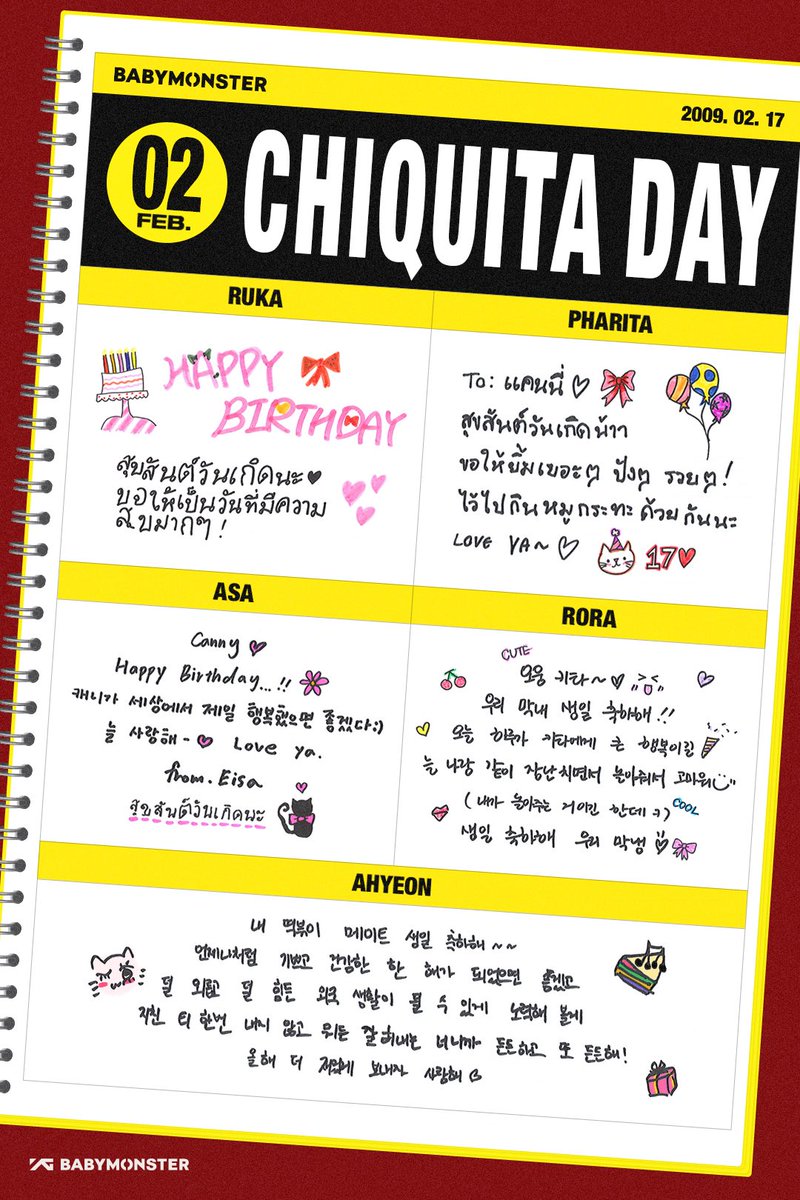 BABYMONSTER
2009. 02. 17
02
FEB.
CHIQUITA DAY
RUKA
HAPPY
BIRTHDAY
สุขสันต์วันเกิดนะ♥
ขอให้เป็นวันที่มีความ
สุขมากๆ!
PHARITA
To: แคนนี่ ♡
สุขสันต์วันเกิดน้าา
ขอให้ยิ้มเยอะๆ ปังๆ รวยๆ!
ไว้ไปกินหมูกระทะด้วยกันนะ
LOVE YA~ ♡
17
ASA
Canny
Happy Birthday...!!
캐니가 세상에서 제일 행복했으면 좋겠다:)
늘 사랑해- Love ya.
from. Eisa
สุขสันต์วันเกิดนะ
RORA
CUTE
오웅 키타~♥
우리 막내 생일 축하해!!
오늘 하루가 키타에게 큰 행복이길
늘 나랑 같이 장난치면서 놀아줘서 고마워
(내가 놀아주는 거이긴 한데ㅋ) COOL
생일 축하해 우리 막냉
AHYEON
내 떡볶이 메이트 생일 축하해~~
언제나처럼 기쁘고 건강한 한 해가 되었으면 좋겠고
덜 외롭고 덜 힘든 외국 생활이 될 수 있게 노력해 볼게
지친 티 한번 내지 않고 뭐든 잘 해내는 너니까 든든하고 또 든든해!
올해 더 재밌게 보내자 사랑해
YG BABYMONSTER